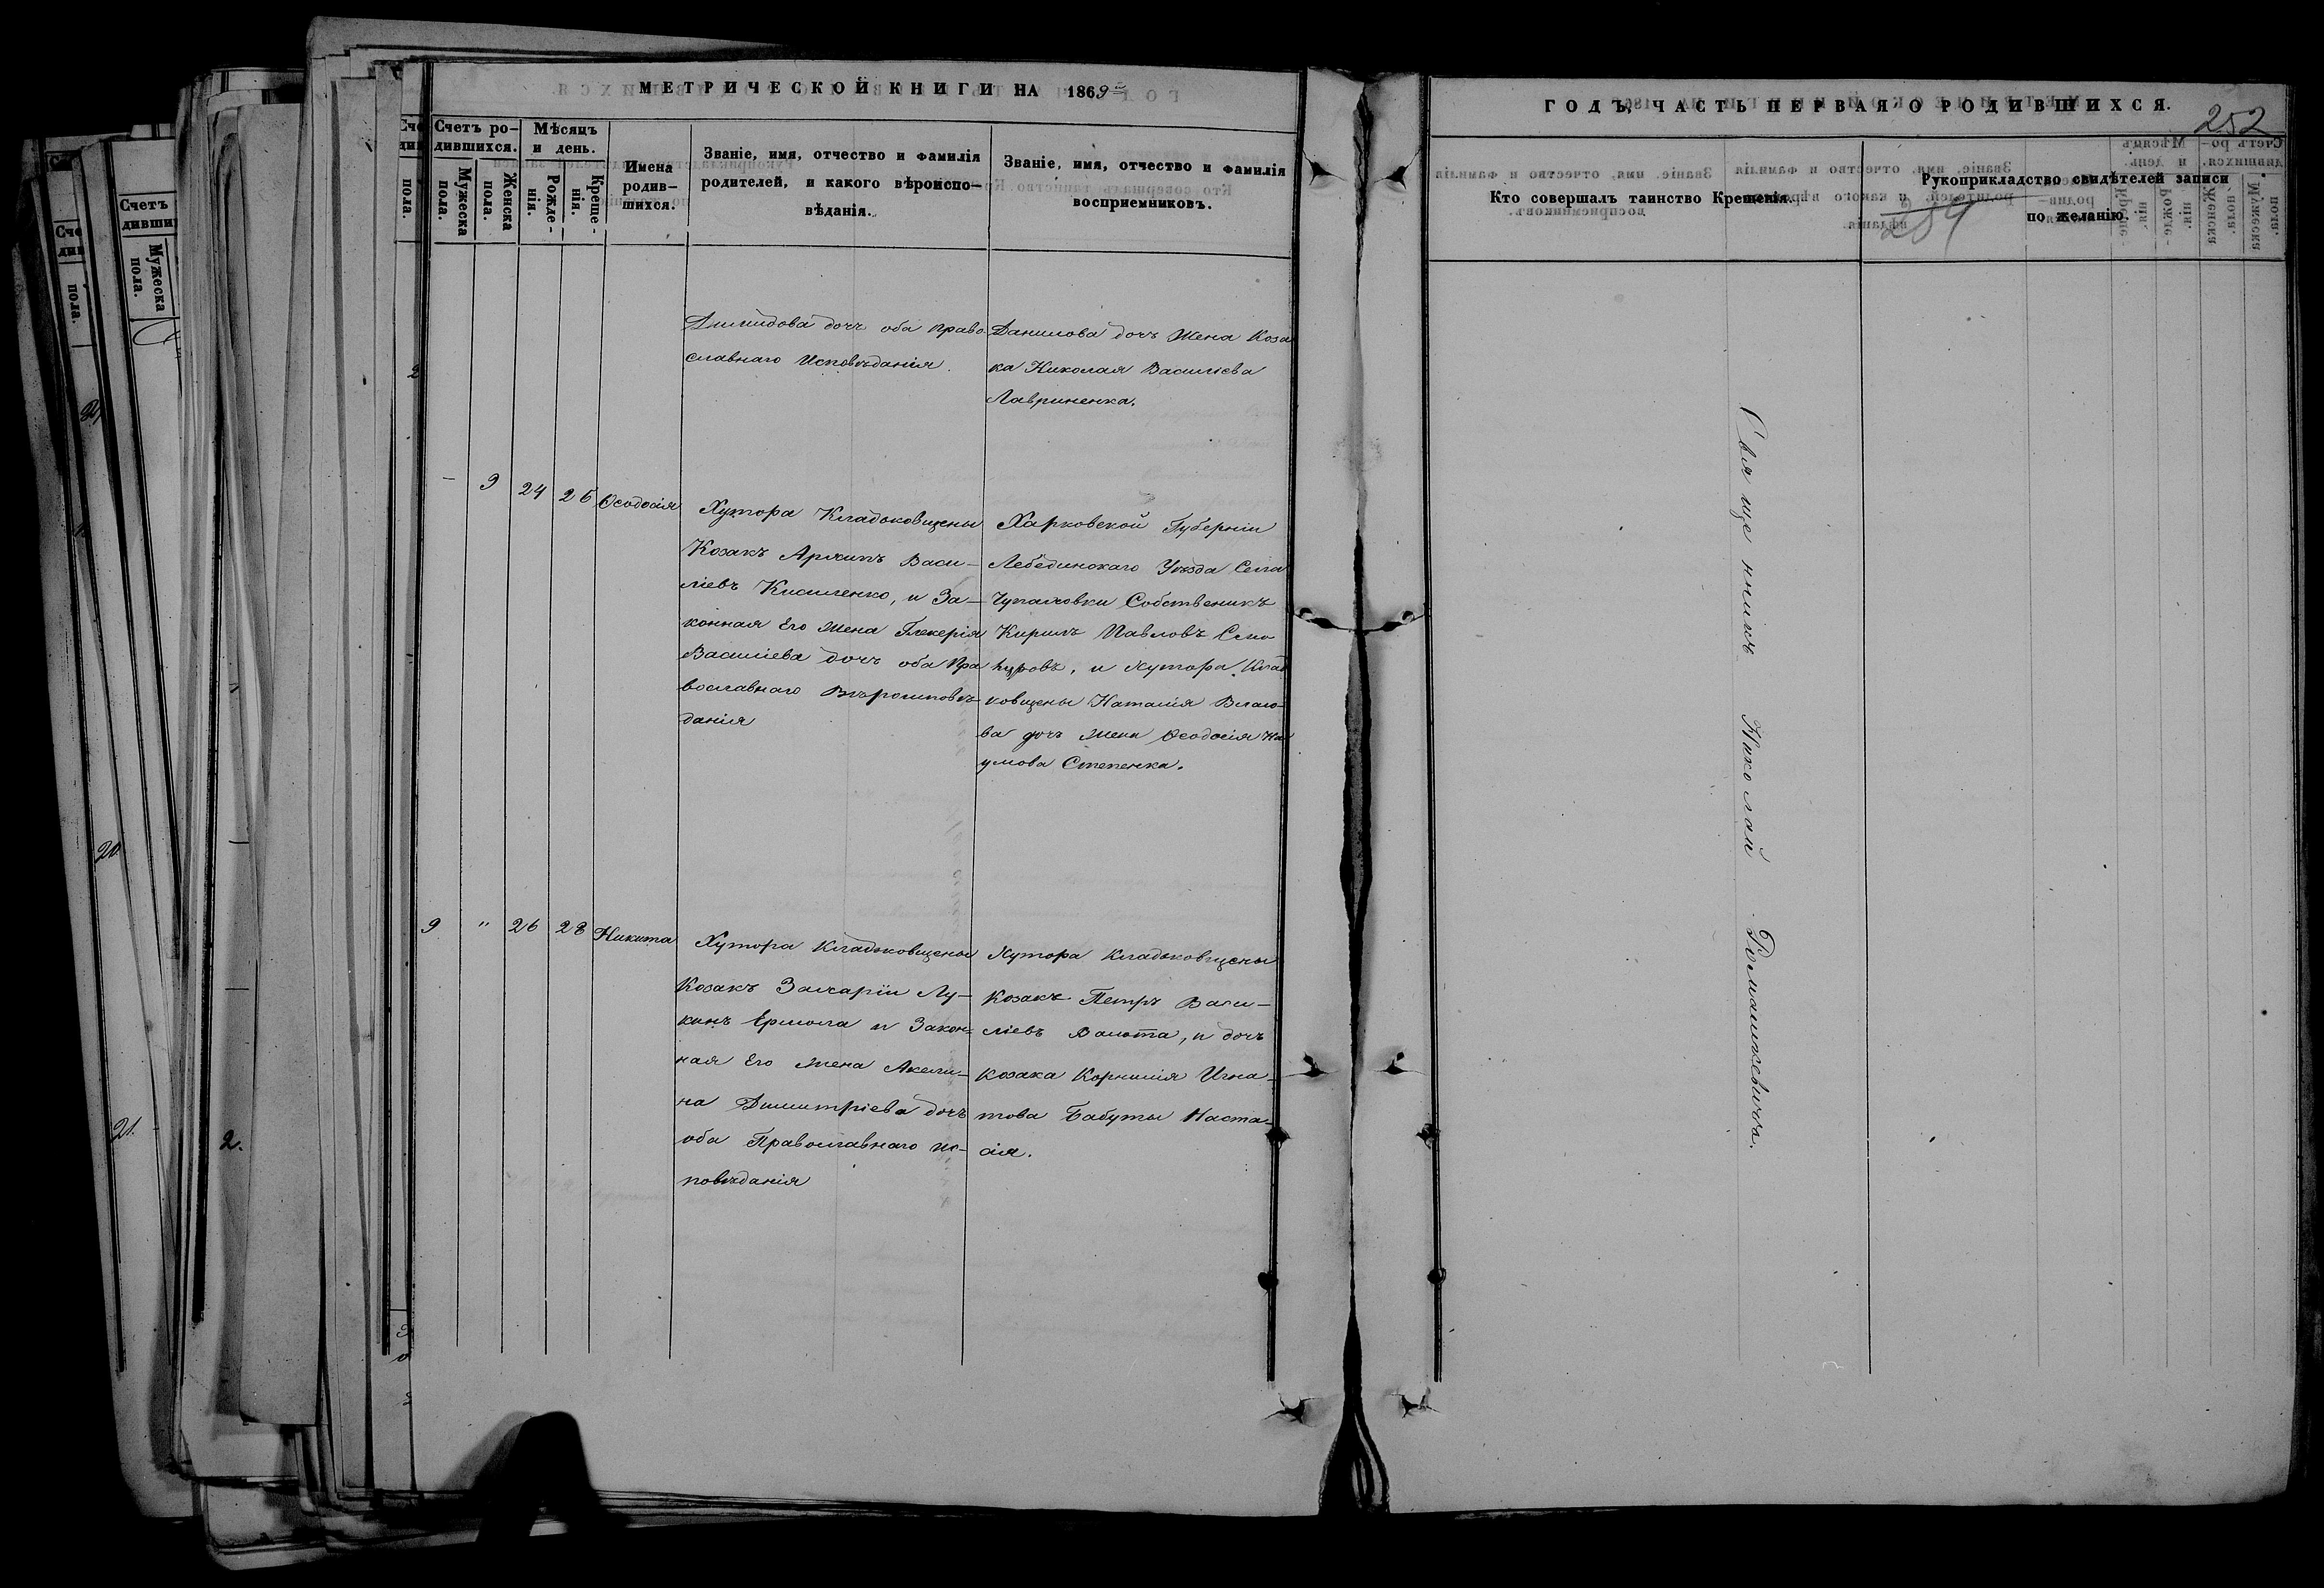 МЕТРИЧЕСКОЙ КНИГИ НА 1869
Счетъ ро-
дившихся.
Мѣсяцъ
и день.
Мужеска
пола.
Женска
пола.
Рожде-
нія.
Креще-
нія.
Имена
родив-
шихся.
Званіе, имя, отчество и фамилія
родителей, и какого вѣроиспо-
вѣданія.
Званіе, имя, отчество и фамилія
восприемниковъ.
дочь оба право
славнаго Исповѣданія.
Данилова дочь Жена Коза
ка Николая Василіева
Лавриненка.
9 24 26 Ѳеодосія
Хутора Кладьковщены
Козакъ Архипъ Васи-
ліевъ Кисиленко, и За-
конная Его Жена Гликерія
Василіева дочь оба Пра
вославнаго Вѣроисповѣ-
данія
Харковской Губерніи
Лебединскаго Уѣзда Села
Чупаховки Собственикъ
Кирилъ Павловъ
и Хутора Клад
ковщены Наталія Власо-
ва дочь Жена Ѳеодосія На
умова Степенка.
9 " 26 28 Никита
Хутора Кладьковщены
Козакъ Захарій Лу-
кинъ Ермола и Закон-
ная Его Жена Акели-
на Димитріева дочь
оба Православнаго ис-
повѣданія
Хутора Кладьковщены
Козакъ Петръ Васи-
ліевъ и дочь
Козака Корнилія Игна-
това Бабуты Наста-
сія.
ГОДЪ, ЧАСТЬ ПЕРВАЯ О РОДИВШИХСЯ.
252
Кто совершалъ таинство Крещенія.
Рукоприкладство свидѣтелей записи
по желанію.
Священникъ Николай Ромашкевичъ.
Счетъ
дивши
Мужеска
пола.
20.
21.
2.